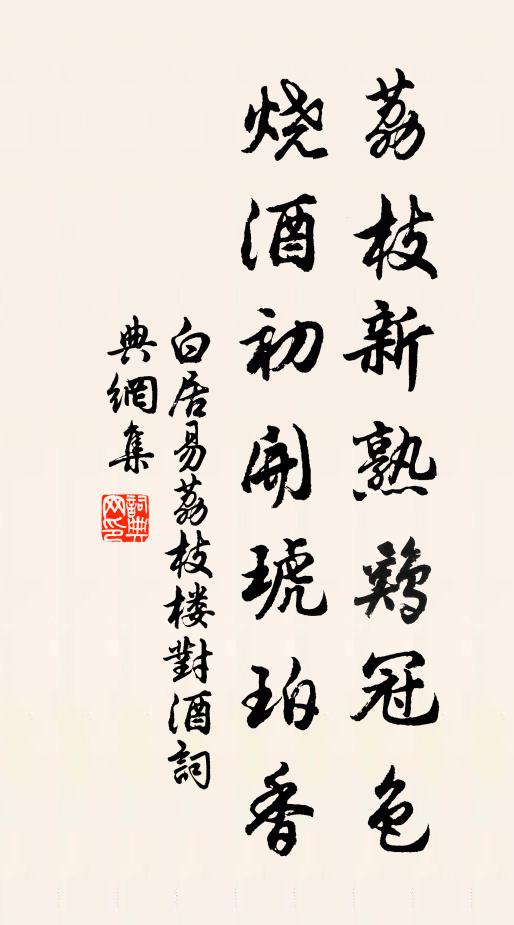 荔枝新熟鷄冠色
烧酒初開琥珀香
白居易荔枝楼對酒詞
典網集
詞典
网印